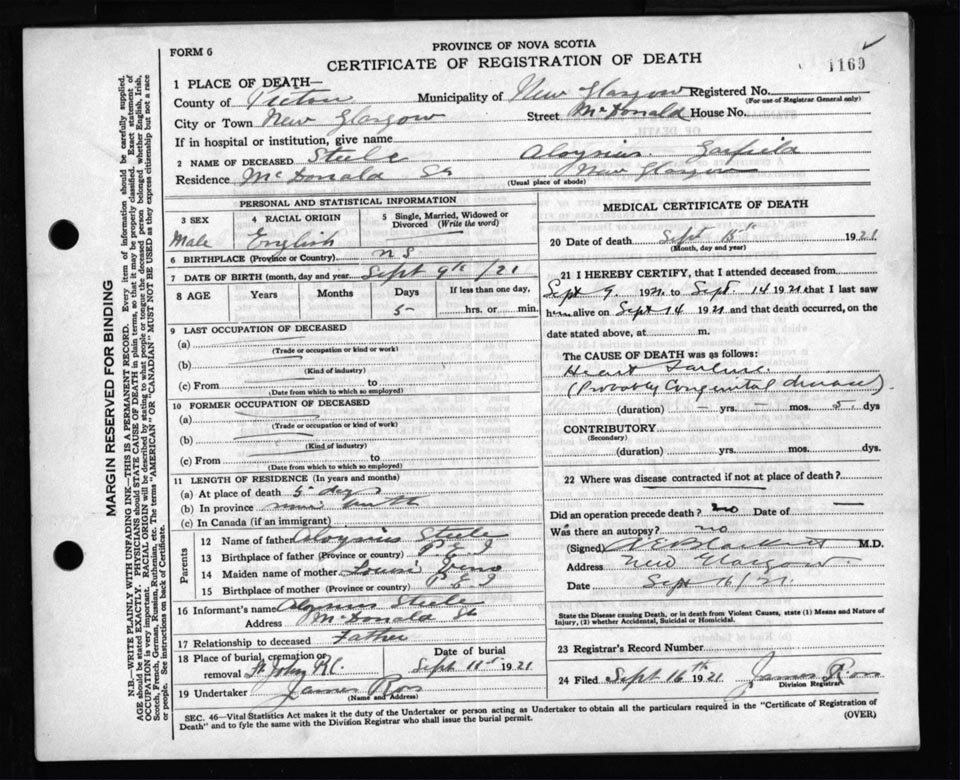 FORM 6
PROVINCE OF NOVA SCOTIA
CERTIFICATE OF REGISTRATION OF DEATH
1169
1 PLACE OF DEATH—
County of Pictou Municipality of New Glasgow Registered No.
(For use of Registrar General only)
City or Town New Glasgow Street McDonald House No.
If in hospital or institution, give name
2 NAME OF DECEASED Steele Aloysius Garfield
Residence McDonald St New Glasgow
(Usual place of abode)
PERSONAL AND STATISTICAL INFORMATION
3 SEX Male
4 RACIAL ORIGIN English
5 Single, Married, Widowed or Divorced (Write the word)
6 BIRTHPLACE (Province or Country) N S
7 DATE OF BIRTH (month, day and year) Sept 9th /21
8 AGE Years Months Days 5 If less than one day, hrs. or min.
9 LAST OCCUPATION OF DECEASED
(a)
(Trade or occupation or kind or work)
(b)
(Kind of industry)
(c) From to
(Date from which to which so employed)
10 FORMER OCCUPATION OF DECEASED
(a)
(Trade or occupation or kind of work)
(b)
(Kind of industry)
(c) From to
(Date from which to which so employed)
11 LENGTH OF RESIDENCE (In years and months)
(a) At place of death 5 days
(b) In province
(c) In Canada (if an immigrant)
Parents
12 Name of father Aloysius Steele
13 Birthplace of father (Province or country) P E I
14 Maiden name of mother
15 Birthplace of mother (Province or country) P E I
16 Informant's name Aloysius Steele
Address McDonald St
17 Relationship to deceased Father
18 Place of burial, cremation or removal St John R.C. Date of burial Sept 1921
19 Undertaker James Ross
(Name and Address)
MEDICAL CERTIFICATE OF DEATH
20 Date of death Sept 15th 1921
(Month, day and year)
21 I HEREBY CERTIFY, that I attended deceased from
Sept 9 1921 to Sept. 14 1921 that I last saw
him alive on Sept 14 1921 and that death occurred, on the
date stated above, at m.
The CAUSE OF DEATH was as follows:
Heart Failure.
(Probably Congenital disease)
(duration) — yrs. — mos. 5 dys
CONTRIBUTORY
(Secondary)
(duration) yrs. mos. dys.
22 Where was disease contracted if not at place of death?
Did an operation precede death? No Date of —
Was there an autopsy? no
(Signed) M.D.
Address New Glasgow
Date Sept 16/21.
State the Disease causing Death, or in death from Violent Causes, state (1) Means and Nature of
Injury, (2) whether Accidental, Suicidal or Homicidal.
23 Registrar's Record Number
24 Filed Sept 16th 1921 James Ross
Division Registrar
SEC. 46—Vital Statistics Act makes it the duty of the Undertaker or person acting as Undertaker to obtain all the particulars required in the "Certificate of Registration of
Death" and to fyle the same with the Division Registrar who shall issue the burial permit.
(OVER)
MARGIN RESERVED FOR BINDING
N.B.—WRITE PLAINLY WITH UNFADING INK—THIS IS A PERMANENT RECORD. Every item of information should be carefully supplied.
AGE should be stated EXACTLY. PHYSICIANS should STATE CAUSE OF DEATH in plain terms, so that it may be properly classified. Exact statement of
OCCUPATION is very important. RACIAL ORIGIN will be described by stating to what people or tongue the deceased person belonged whether English, Irish,
Scotch, French, German, Russian, Ruthenian, etc. The terms "AMERICAN" or "CANADIAN" MUST NOT BE USED as they express citizenship but not a race
or people. See instructions on back of Certificate.